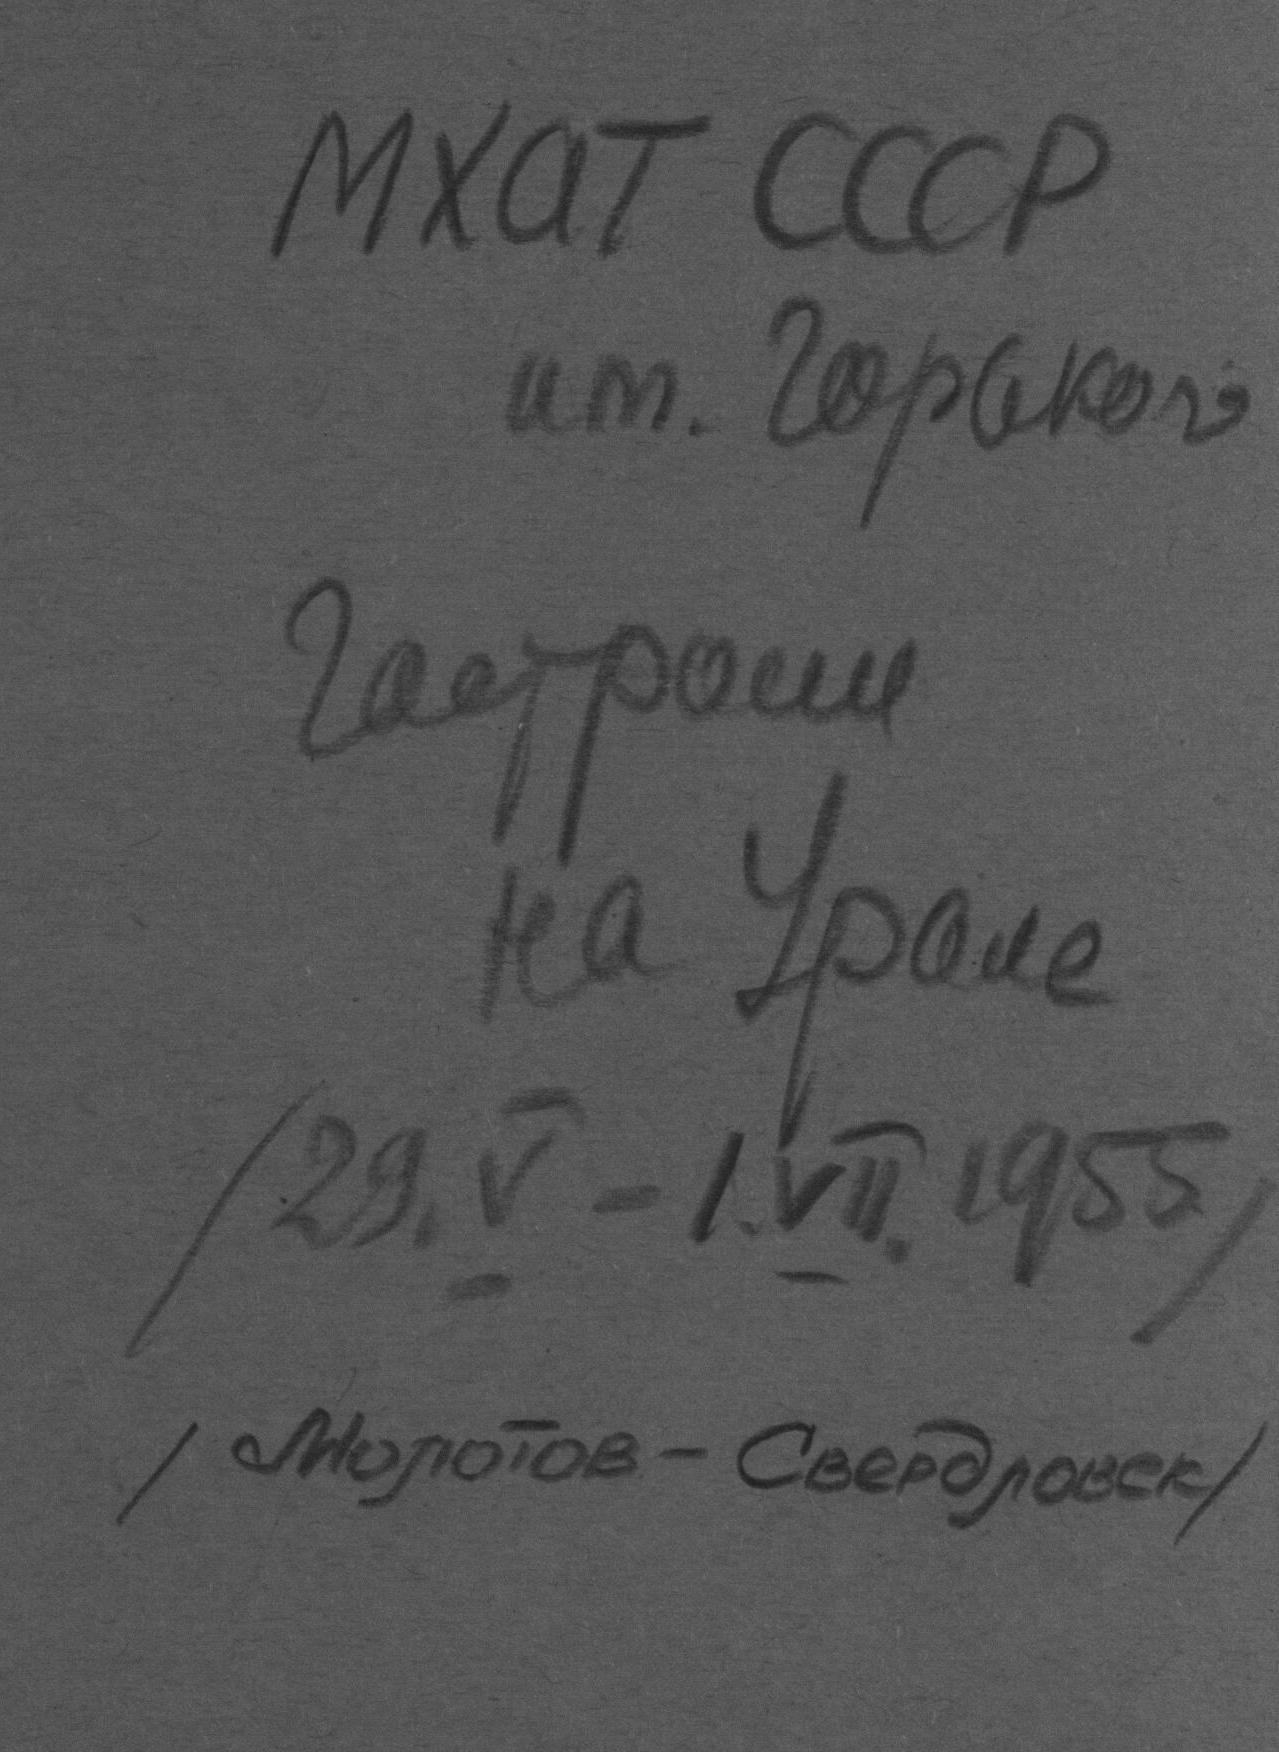 МХАТ СССР
им. Горького
Гастроли
на Урале
/29.V – 1.VII.1955/
/Молотов – Свердловск/